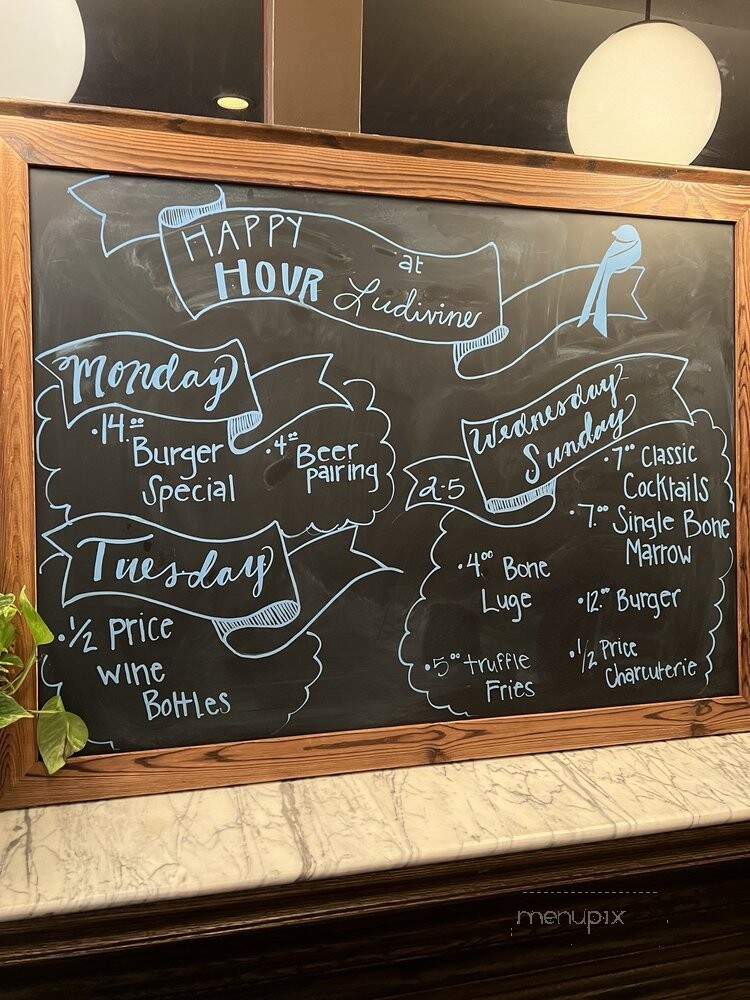 HAPPY
HOUR at
Ludivine
Monday
•14.00
Burger
Special
•4.00 Beer
pairing
Tuesday
•1/2 Price
wine
Bottles
Wednesday
Sunday
2-5
•7.00 Classic
Cocktails
•7.00 Single Bone
Marrow
•4.00 Bone
Luge
•12.00 Burger
•5.00 truffle
Fries
•1/2 Price
Charcuterie
menupix